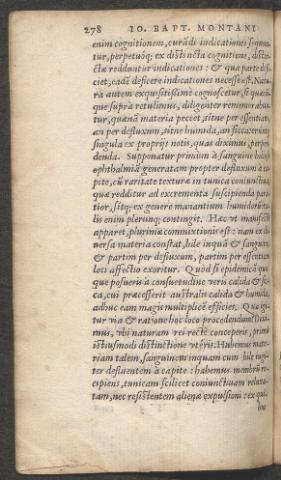 278 IO. BAPT. MONTANI
enim cognitionem, curādi indicationes sequun
tur, perpetuóq; ex distincta cognitione, distin-
ctæ redduntur indicationes: & qua parte difi
ciet, eadē deficere indicationes necesse est. Natu
ra autem exquisitissimè cognoscetur, si quæ
que suprà retulimus, diligenter rememorabun
tur, quænā materia peccet, sitne per essentiā,
an per defluxum, sitne humida, an sicca: verùm
singula ex proprijs notis, quas diximus, perpē
denda. Supponatur primùm à sanguine bilioso
ophthalmiā generatam propter defluxum à ca
pite, cū raritate texturæ in tunica coniunctiua,
quæ redditur ad excrementa suscipienda para
tior, sitq; ex genere manantium humidorū
lis enim plerunq; contingit. Hæc vt manifestè
apparet, plurimæ commixtionis est: nam ex di
uersa materia constat, bile inquā & sanguine,
& partim per defluxum, partim per essentiam
loci affectio exoritur. Quòd si epidemica quo
que posueris à consuetudine veris calida & sic
ca, cui præcesserit australis calida & humida,
adhuc eam magis multiplicē efficies. Qua igi
tur via & ratione hoc loco procedendum
mus, vbi naturam rei rectè conceperis, primùm
istiusmodi distinctione vteris. Habemus mate-
riam talem, sanguinem inquam cum bile iugi-
ter defluentem à capite: habemus membrū re-
cipiens, tunicam scilicet coniunctiuam relaxa-
tam, nec resistentem alienæ expulsioni: ex qui-